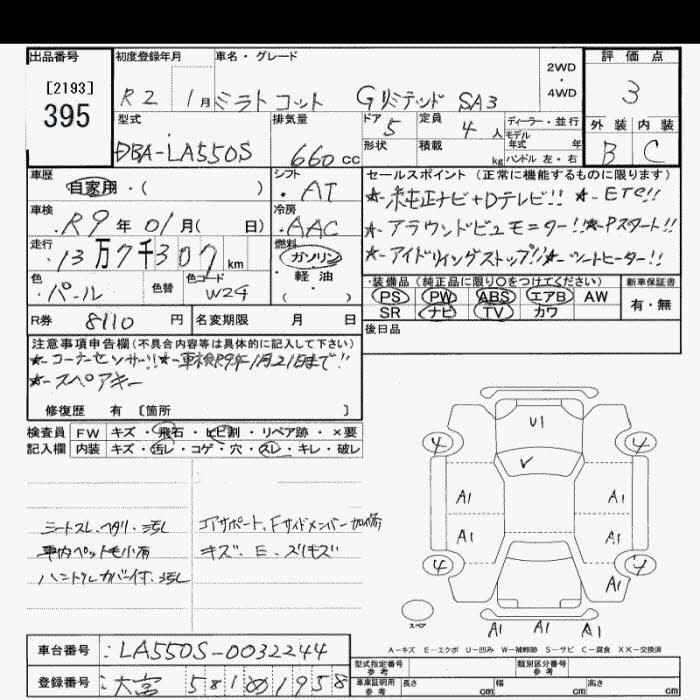 出品番号
[2193]
395
初度登録年月
R2 1月
車名・グレード
ミラトコット GリミテッドSA3
2WD
・
4WD
評価点
3
外装 内装
B C
型式
DBA-LA550S
排気量
660 cc
ドア 5
形状
定員 4人
積載 kg
ディーラー・並行
モデル年式 年
ハンドル 左・右
車歴
自家用・( )
シフト
・AT
車検
・R9年01月( 日)
冷房
・AAC
走行
・13万7千307km
燃料
ガソリン
・軽油
・( )
色
・パール
色替
色コード
W24
R券 8110円
名変期限 月 日
セールスポイント(正常に機能するものに限ります)
★-純正ナビ+Dテレビ!! ★-ETC!!
★-アラウンドビューモニター!! ★-Pスタート!!
★-アイドリングストップ!! ★-シートヒーター!!
・装備品(純正品に限り○をつけてください)
PS PW ABS エアB AW
SR ナビ TV カワ
新車保証書
有・無
後日品
注意事項申告欄(不具合内容等は具体的に記入して下さい)
★-コーナーセンサー!! ★-車検R9年1月21日まで!!
★-スペアキー
修復歴 有〔箇所 〕
検査員 FW キズ・飛石・ヒビ割・リペア跡・×要
記入欄 内装 キズ・汚レ・コゲ・穴・スレ・キレ・破レ
シートスレ・ヘタリ・汚レ
車内ペット毛小有
ハンドルカバー付・汚レ
コアサポート、Fサイドメンバー加修
キズ、E、ズリキズ
U1
4 4
A1 A1
A1 A1
4 4
A1
スペア
A1 A1 A1
A-キズ E-エクボ U-凹み W-補修跡 S-サビ C-腐食 XX-交換済
車台番号 :LA550S-0032244
登録番号 :大宮 581 1958
型式指定番号 参考
類別区分番号 参考
車庫証明用 参考 長さ cm 幅 cm 高さ cm